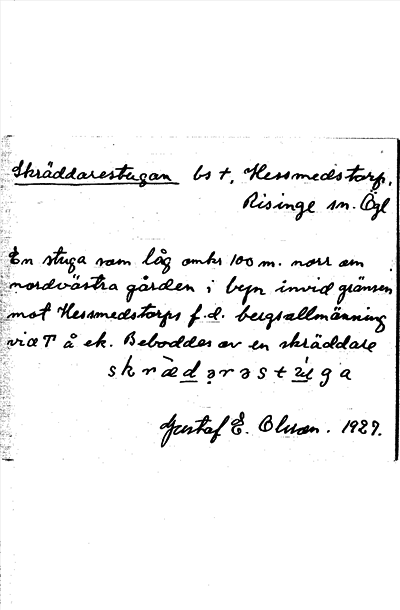 Skräddarestugan bs †, Hessmedstorp,
Risinge sn. Ögl
En stuga som låg omkr 100 m. norr om
nordvästra gården i byn invid gränsen
mot Hessmedstorps f.d. bergsallmänning
vid T å ek. Beboddes av en skräddare
skrædərəstuga
Gustaf E. Olsson. 1929.